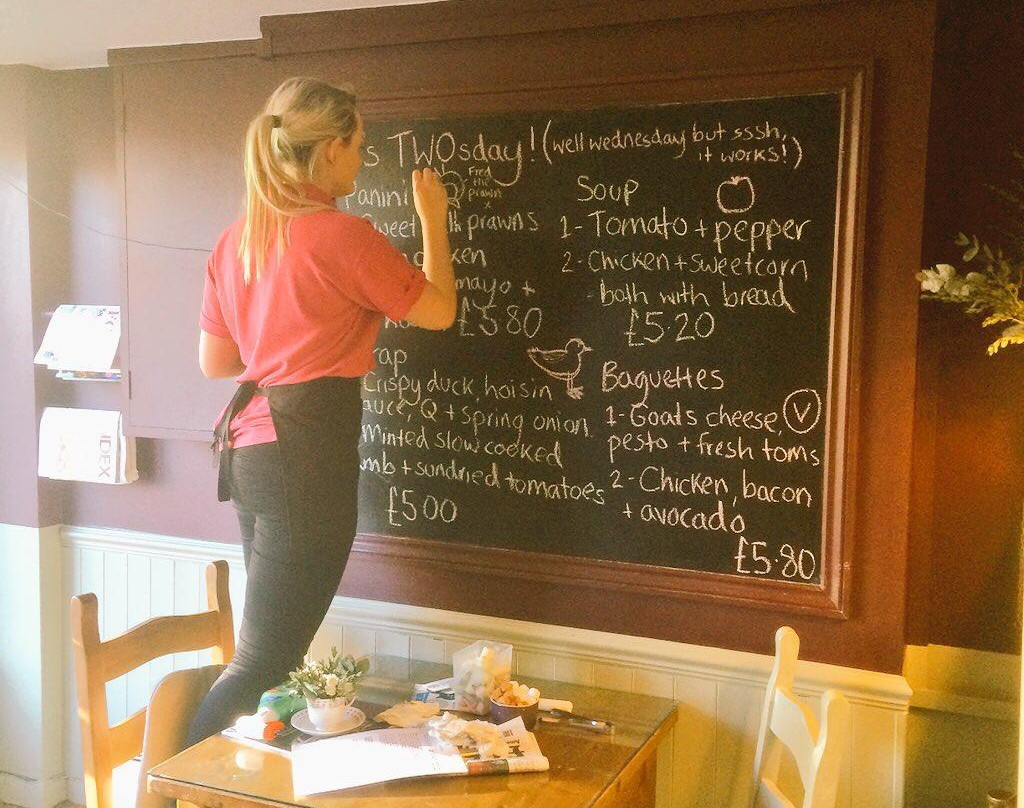 s TWOsday! (well wednesday but sssh,
it works!)
Panini
Fred
the
prawn
x
prawns
mayo +
£5.80
Crispy duck, hoisin
Q + spring onion
Minted slow cooked
+ sundried tomatoes
£5.00
Soup
1- Tomato + pepper
2- Chicken + sweetcorn
- both with bread
£5.20
Baguettes
1- Goats cheese, V
pesto + fresh toms
2- Chicken, bacon
+ avocado
£5.80
IDEX